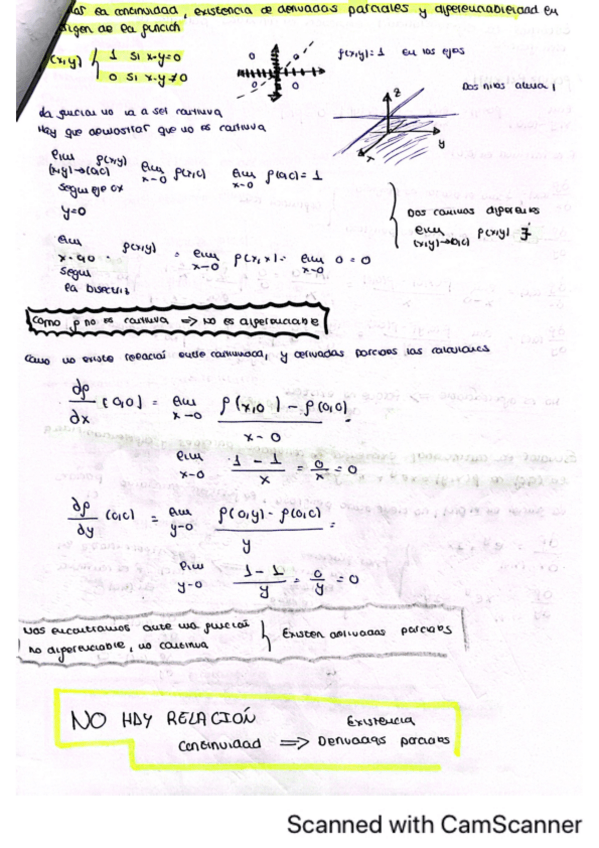 la continuidad, existencia de derivadas parciales y diferenciabilidad en
origen de la función
f(x,y) { 1 si x·y=0
0 si x·y≠0
f(x,y)=1 en los ejes
Dos
altura 1
La función no va a ser continua
Hay que demostrar que no es continua
z
y
x
0 0
0 0
lim f(x,y) lim f(x,0) lim f(0,0) = 1
(x,y)→(0,0) x→0 x→0
según eje OX
y=0
Dos caminos diferentes
lim f(x,y) ∄
(x,y)→(0,0)
lim f(x,y) = lim f(x,x) = lim 0 = 0
x→0 x→0
según
la bisectriz
Como f no es continua ⇒ No es diferenciable
Como no existe relación entre continuidad, y derivadas parciales las calculamos
∂f/∂x (0,0) = lim x→0 f(x,0) - f(0,0) / x-0
lim x→0 1-1 / x = 0/x = 0
∂f/∂y (0,0) = lim y→0 f(0,y) - f(0,0) / y =
lim y→0 1-1 / y = 0/y = 0
Nos encontramos ante una función } Existen derivadas parciales
no diferenciable, no continua
NO HAY RELACIÓN Existencia
continuidad ⇒ Derivadas parciales
Scanned with CamScanner